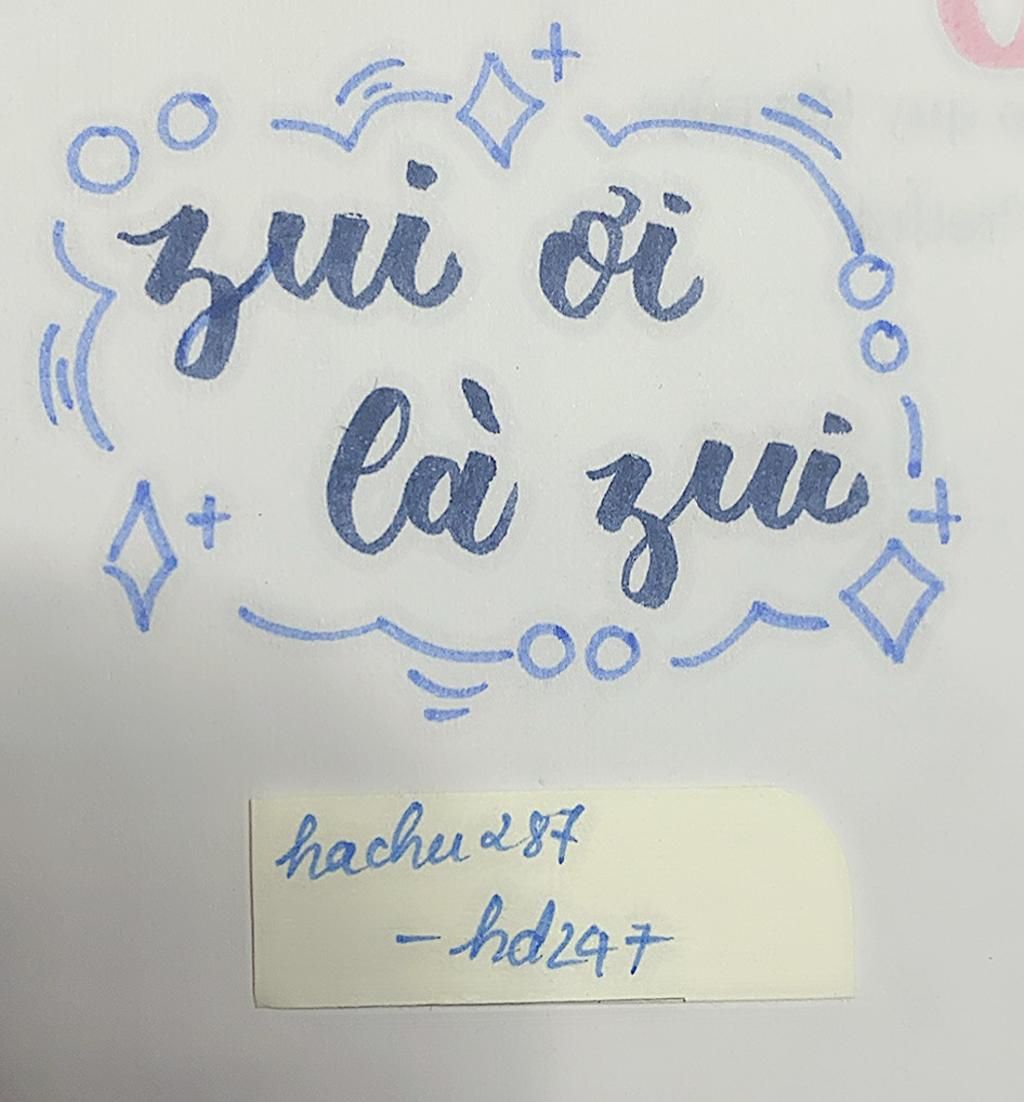 zui ơi
là zui
hachu287
- hd247